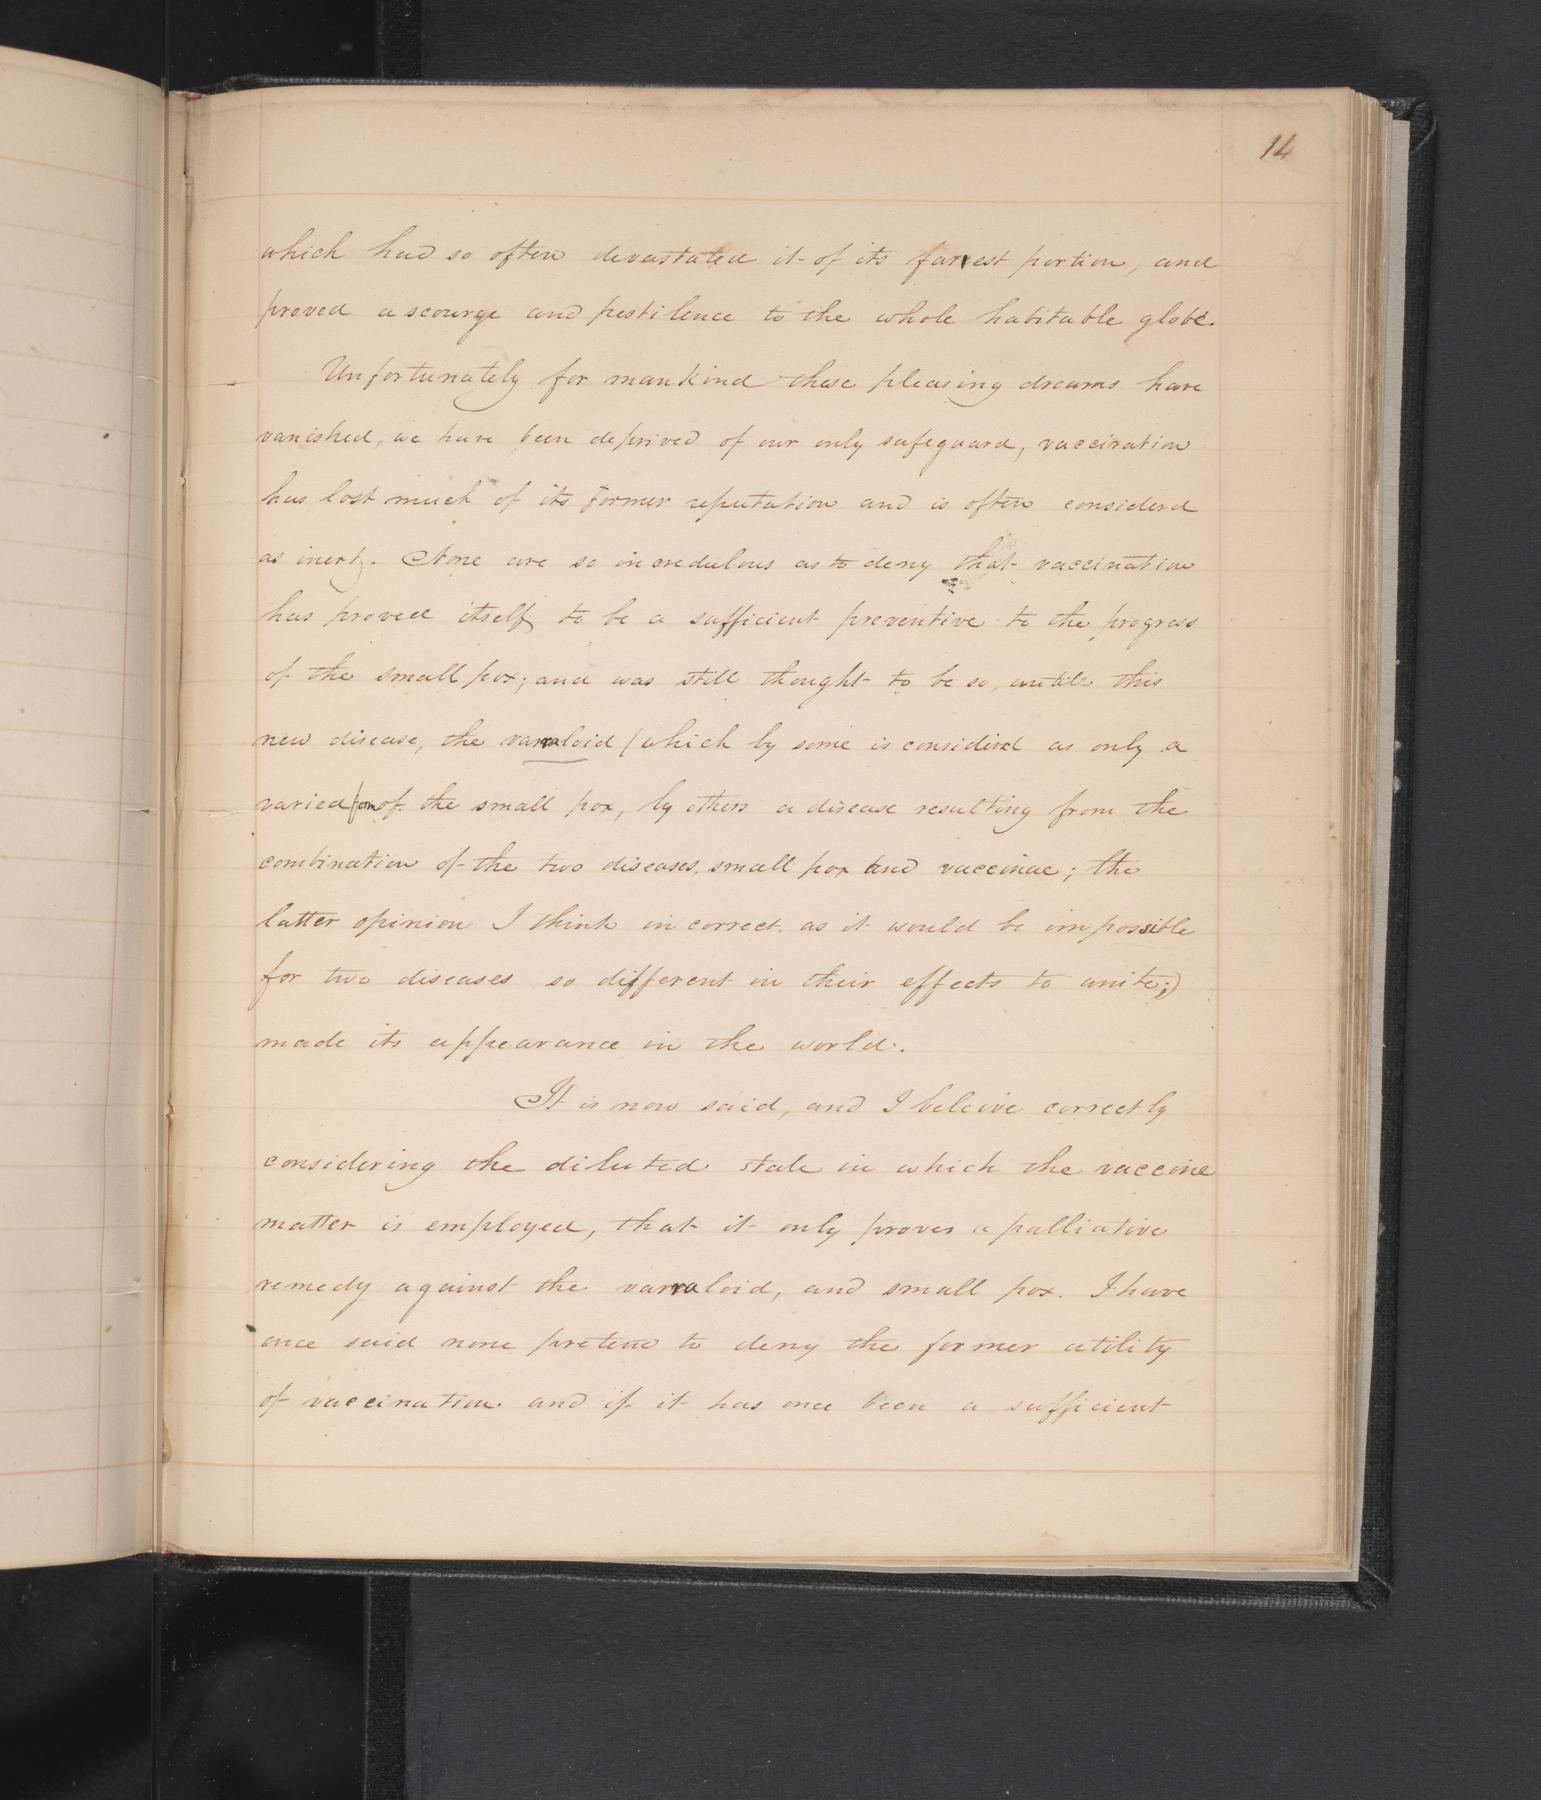 14
which had so often devastated it of its farrest portion, and
proved a scourge and pestilence to the whole habitable globe.
Unfortunately for mankind these pleasing dreams have
vanished, we have been deprived of our only safeguard, vaccination
has lost much of its former reputation and is often considerd
as inert. None are so incredulous as to deny that vaccination
has proved itself to be a sufficient preventive to the progress
of the small pox; and was still thought to be so, untill this
new disease, the varraloid (which by some is considerd as only a
varied form of the small pox, by others a disease resulting from the
combination of the two diseases, small pox and vaccinae; the
latter opinion I think incorrect, as it would be impossible
for two diseases so different in their effects to unite;)
made its appearance in the world.
It is now said, and I beleive correctly
considering the diluted state in which the vaccine
matter is employed, that it only proves a palliative
remedy against the varraloid, and small pox. I have
once said none pretend to deny the former utility
of vaccination and if it has once been a sufficient